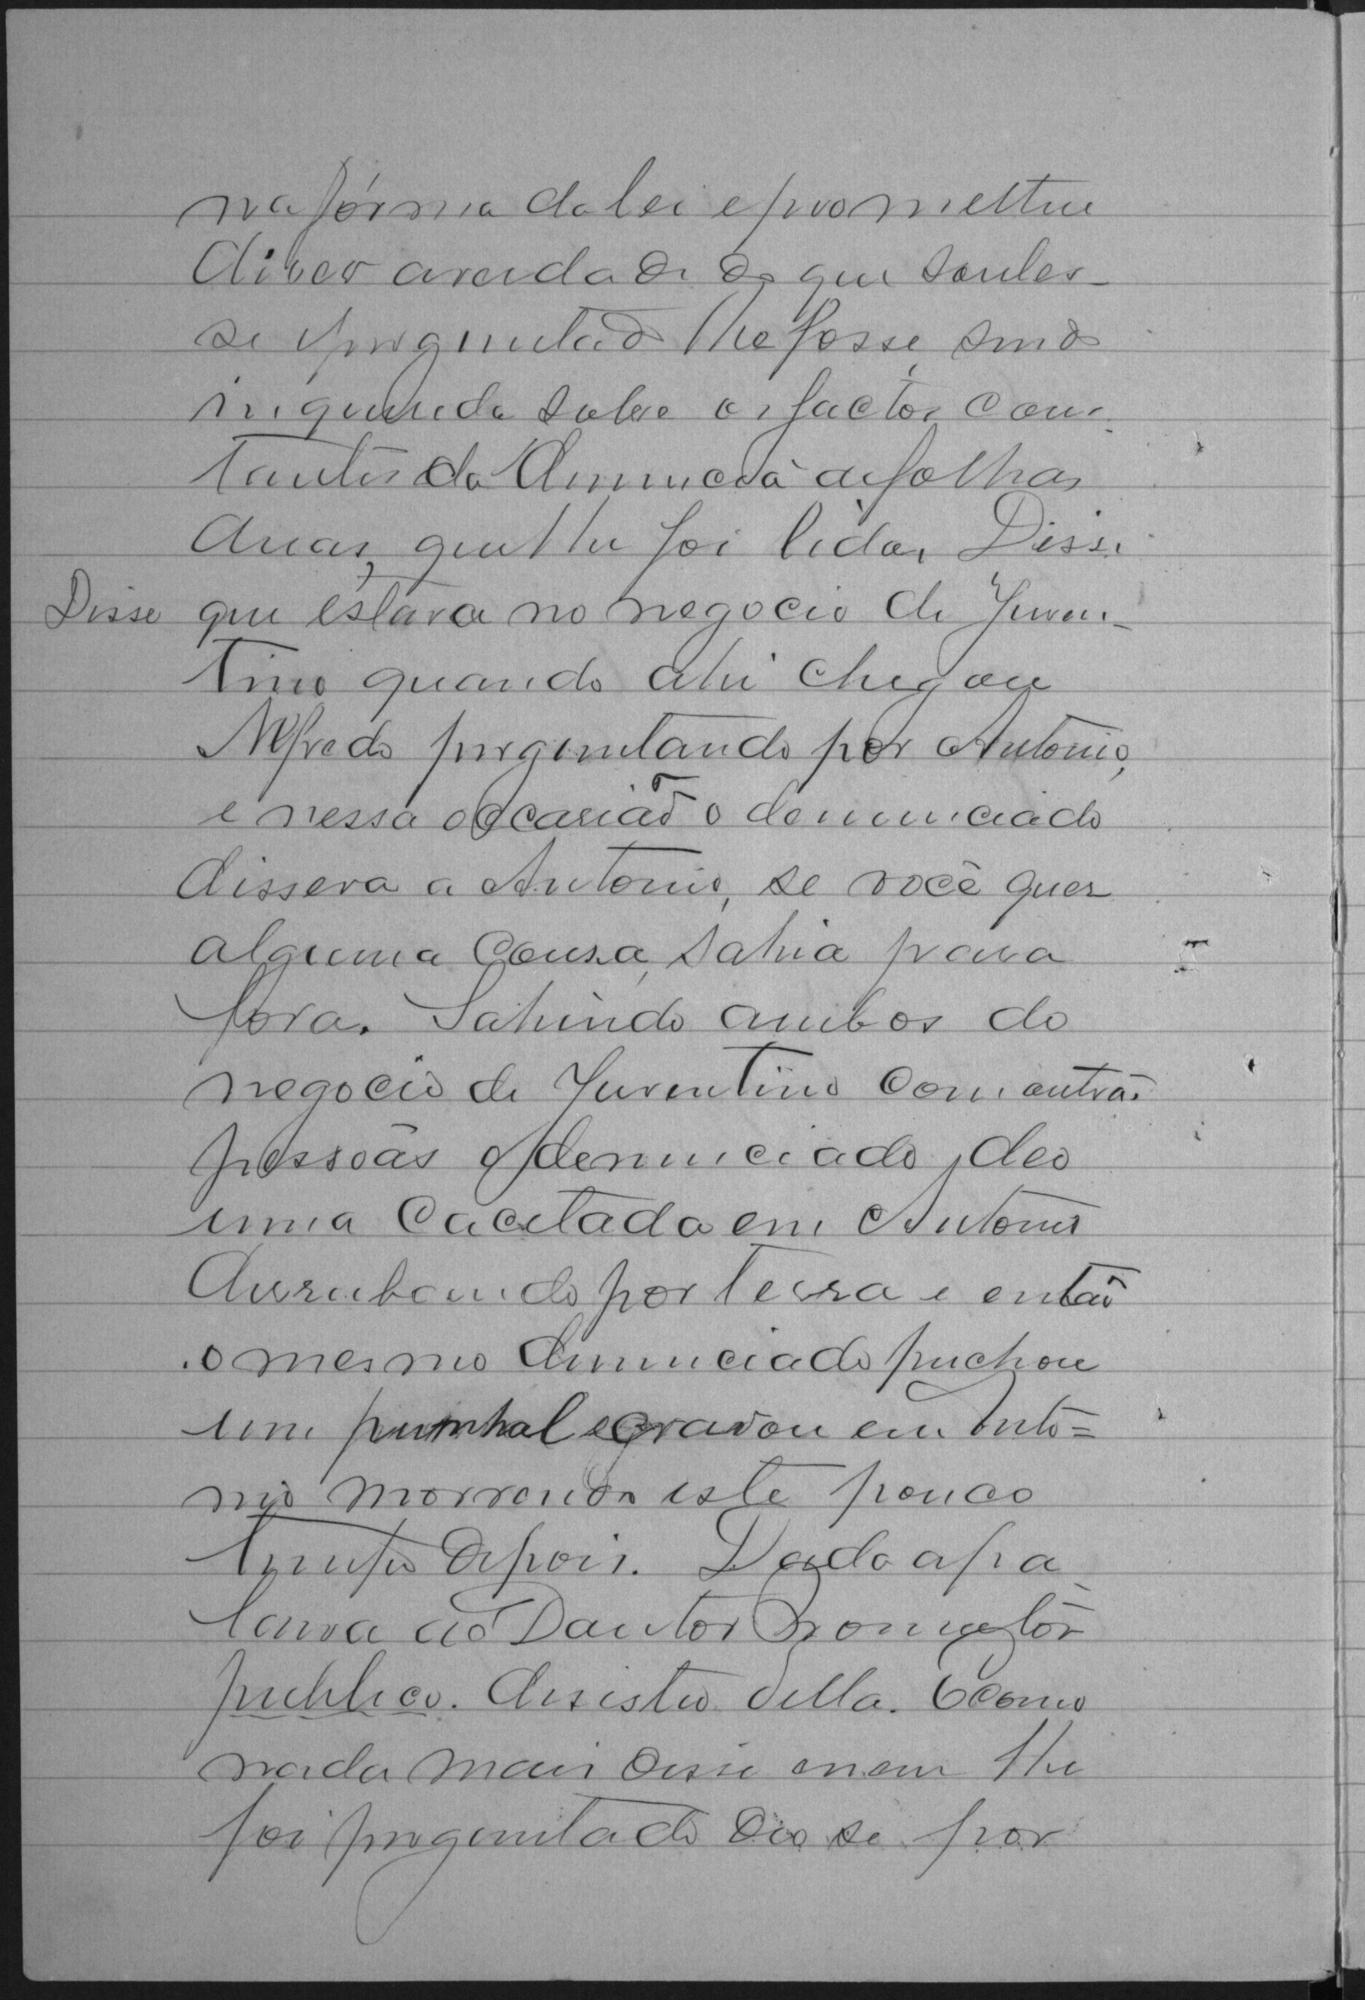 na fórma da lei e prometteu
diser a verdade do que soubes-
se e preguntado lhe fosse, sendo
inquerida sobre os factos cons-
tantes da denuncia de folhas
duas, que lhe foi lida, Disse
Disse que estava no negocio de Juven-
tino quando ahi chegou
Alfredo preguntando por Antonio,
e nessa occasião o denunciado
dissera a Antonio, se você quer
alguma cousa, sahia para
fora. Sahindo ambos do
negocio de Juventino com outras
pessoas o denunciado, deo
uma cacetada em Antonio
derrubando por terra e então
o mesmo denunciado puchou
um punhal e cravou em Anto=
nio morrendo este pouco
tempo depois. Dada a pa
lavra ao Doutor Promotor
publico. desistio della. E como
nada mais disse e nem lhe
foi preguntado deo se por